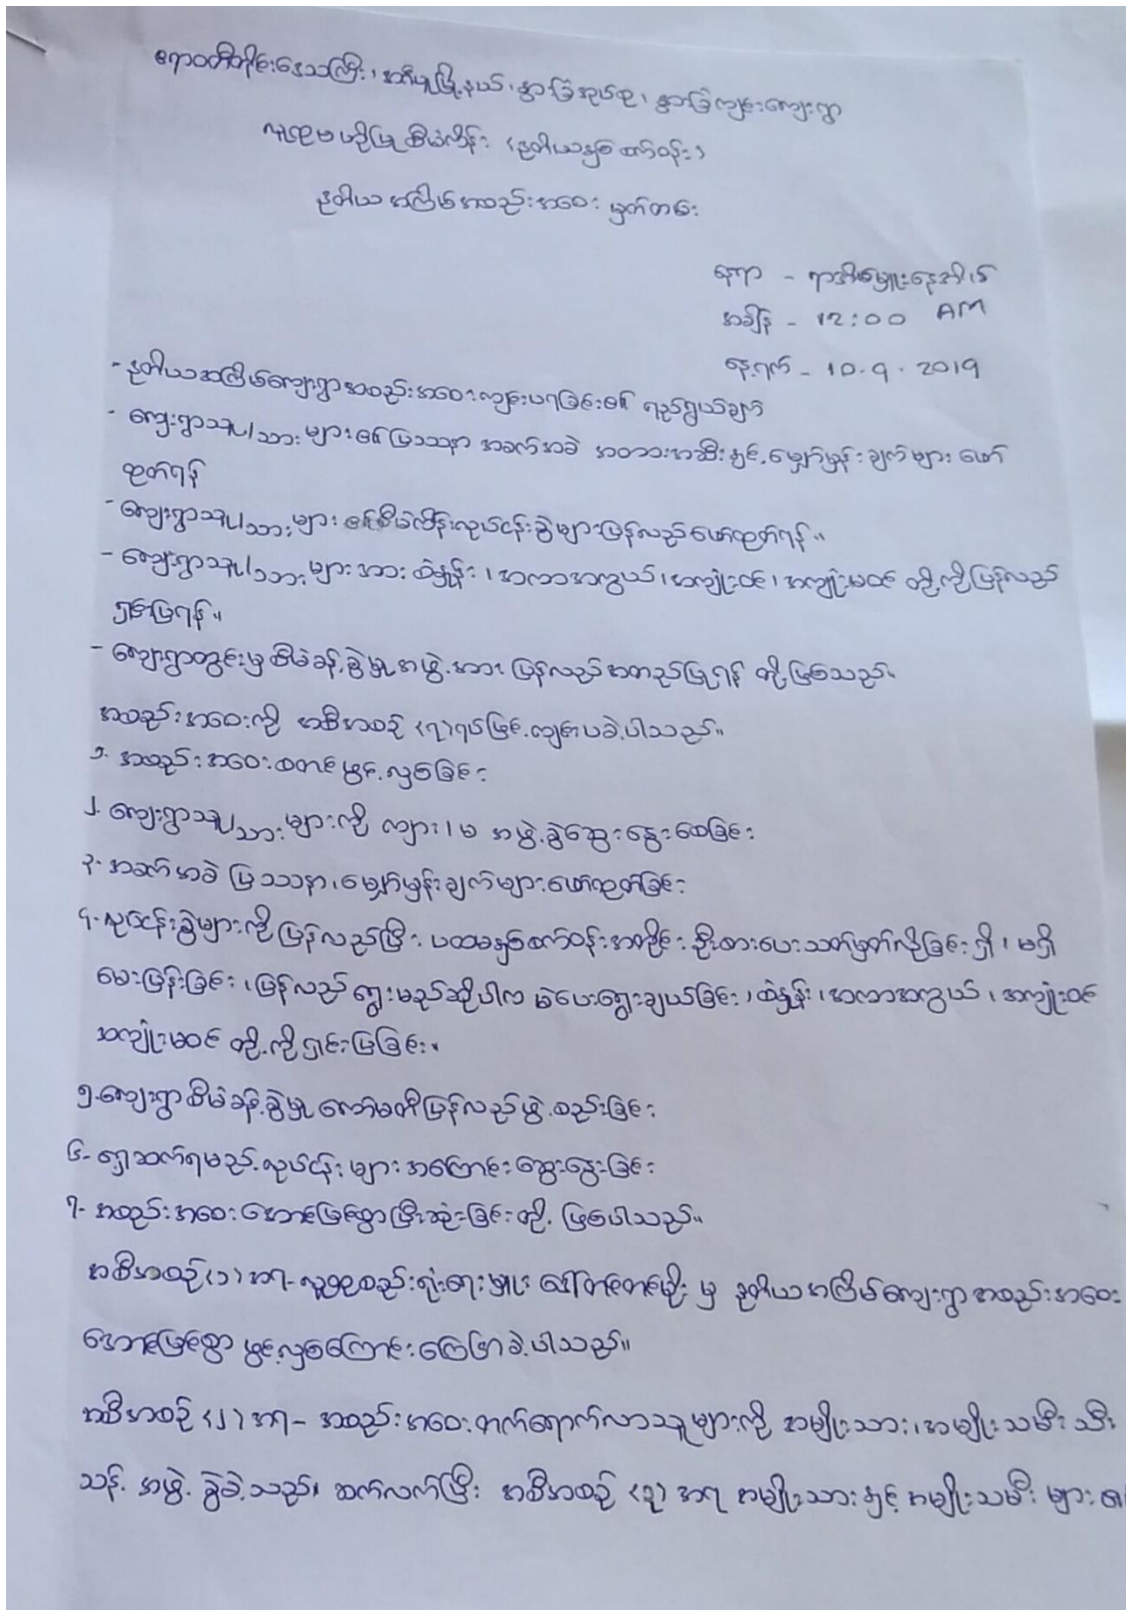 ဧရာဝတီတိုင်းဒေသကြီး၊ အိမ်မဲမြို့နယ်၊ နွားခြံအုပ်စု၊ နွားခြံကျွန်းကျေးရွာ
လူထုဗဟိုပြုစီမံကိန်း (ဒုတိယနှစ်စက်ဝန်း)
ဒုတိယအကြိမ်အစည်းအဝေး မှတ်တမ်း
နေရာ - ရာအိမ်မှူးနေအိမ်
အချိန် - 12:00 AM
နေ့ရက် - 10.9.2019
- ဒုတိယအကြိမ်ကျေးရွာအစည်းအဝေးကျင်းပရခြင်း၏ ရည်ရွယ်ချက်
- ကျေးရွာသူ/သားများ၏ပြဿနာ အခက်အခဲ အတားအဆီးနှင့်မျှော်မှန်းချက်များ ဖော်
ထုတ်ရန်
- ကျေးရွာသူ/သားများ၏စီမံကိန်းလုပ်ငန်းခွဲများပြန်လည်ဖော်ထုတ်ရန်။
- ကျေးရွာသူ/သားများအား ထိန်းသိမ်း၊ အကာအကွယ်၊ အကျုံးဝင်၊ အကျုံးမဝင် တို့ကိုပြန်လည်
ရှင်းပြရန်။
- ကျေးရွာတွင်းမှစီမံခန့်ခွဲမှုအဖွဲ့အား ပြန်လည်အတည်ပြုရန် တို့ဖြစ်သည်။
အစည်းအဝေးကို အစီအစဉ် (၇)ရပ်ဖြင့်ကျင်းပခဲ့ပါသည်။
၁. အစည်းအဝေးစတင်ဖွင့်လှစ်ခြင်း
၂. ကျေးရွာသူ/သားများကို ကျား/မ အဖွဲ့ခွဲဆွေးနွေးစေခြင်း
၃. အခက်အခဲ ပြဿနာ၊ မျှော်မှန်းချက်များဖော်ထုတ်ခြင်း
၄. လုပ်ငန်းခွဲများကိုပြန်လည်ပြီး ပထမနှစ်စက်ဝန်းအတိုင်း ဦးစားပေးသတ်မှတ်လိုခြင်း ရှိ/မရှိ
မေးမြန်းခြင်း၊ ပြန်လည် ရွေးမည်ဆိုပါက မဲပေးရွေးချယ်ခြင်း၊ ထိန်းသိမ်း၊ အကာအကွယ်၊ အကျုံးဝင်
အကျုံးမဝင် တို့ကိုရှင်းပြခြင်း။
၅. ကျေးရွာစီမံခန့်ခွဲမှု ကော်မတီပြန်လည်ဖွဲ့စည်းခြင်း
၆. ရှေ့ဆက်ရမည့်လုပ်ငန်းများ အကြောင်းဆွေးနွေးခြင်း
၇. အစည်းအဝေးအောင်မြင်စွာပြီးဆုံးခြင်းတို့ ဖြစ်ပါသည်။
အစီအစဉ်(၁)အရ- လူထုစည်းရုံးရေးမှူး ဒေါ် မှ ဒုတိယအကြိမ်ကျေးရွာအစည်းအဝေး
အောင်မြင်စွာ ဖွင့်လှစ်ကြောင်းကြေငြာခဲ့ပါသည်။
အစီအစဉ် (၂) အရ- အစည်းအဝေးတက်ရောက်လာသူများကို အမျိုးသား၊ အမျိုးသမီး သီး
သန့် အဖွဲ့ ခွဲခဲ့သည်။ ဆက်လက်ပြီး အစီအစဉ် (၃) အရ အမျိုးသားနှင့် အမျိုးသမီး များ၏